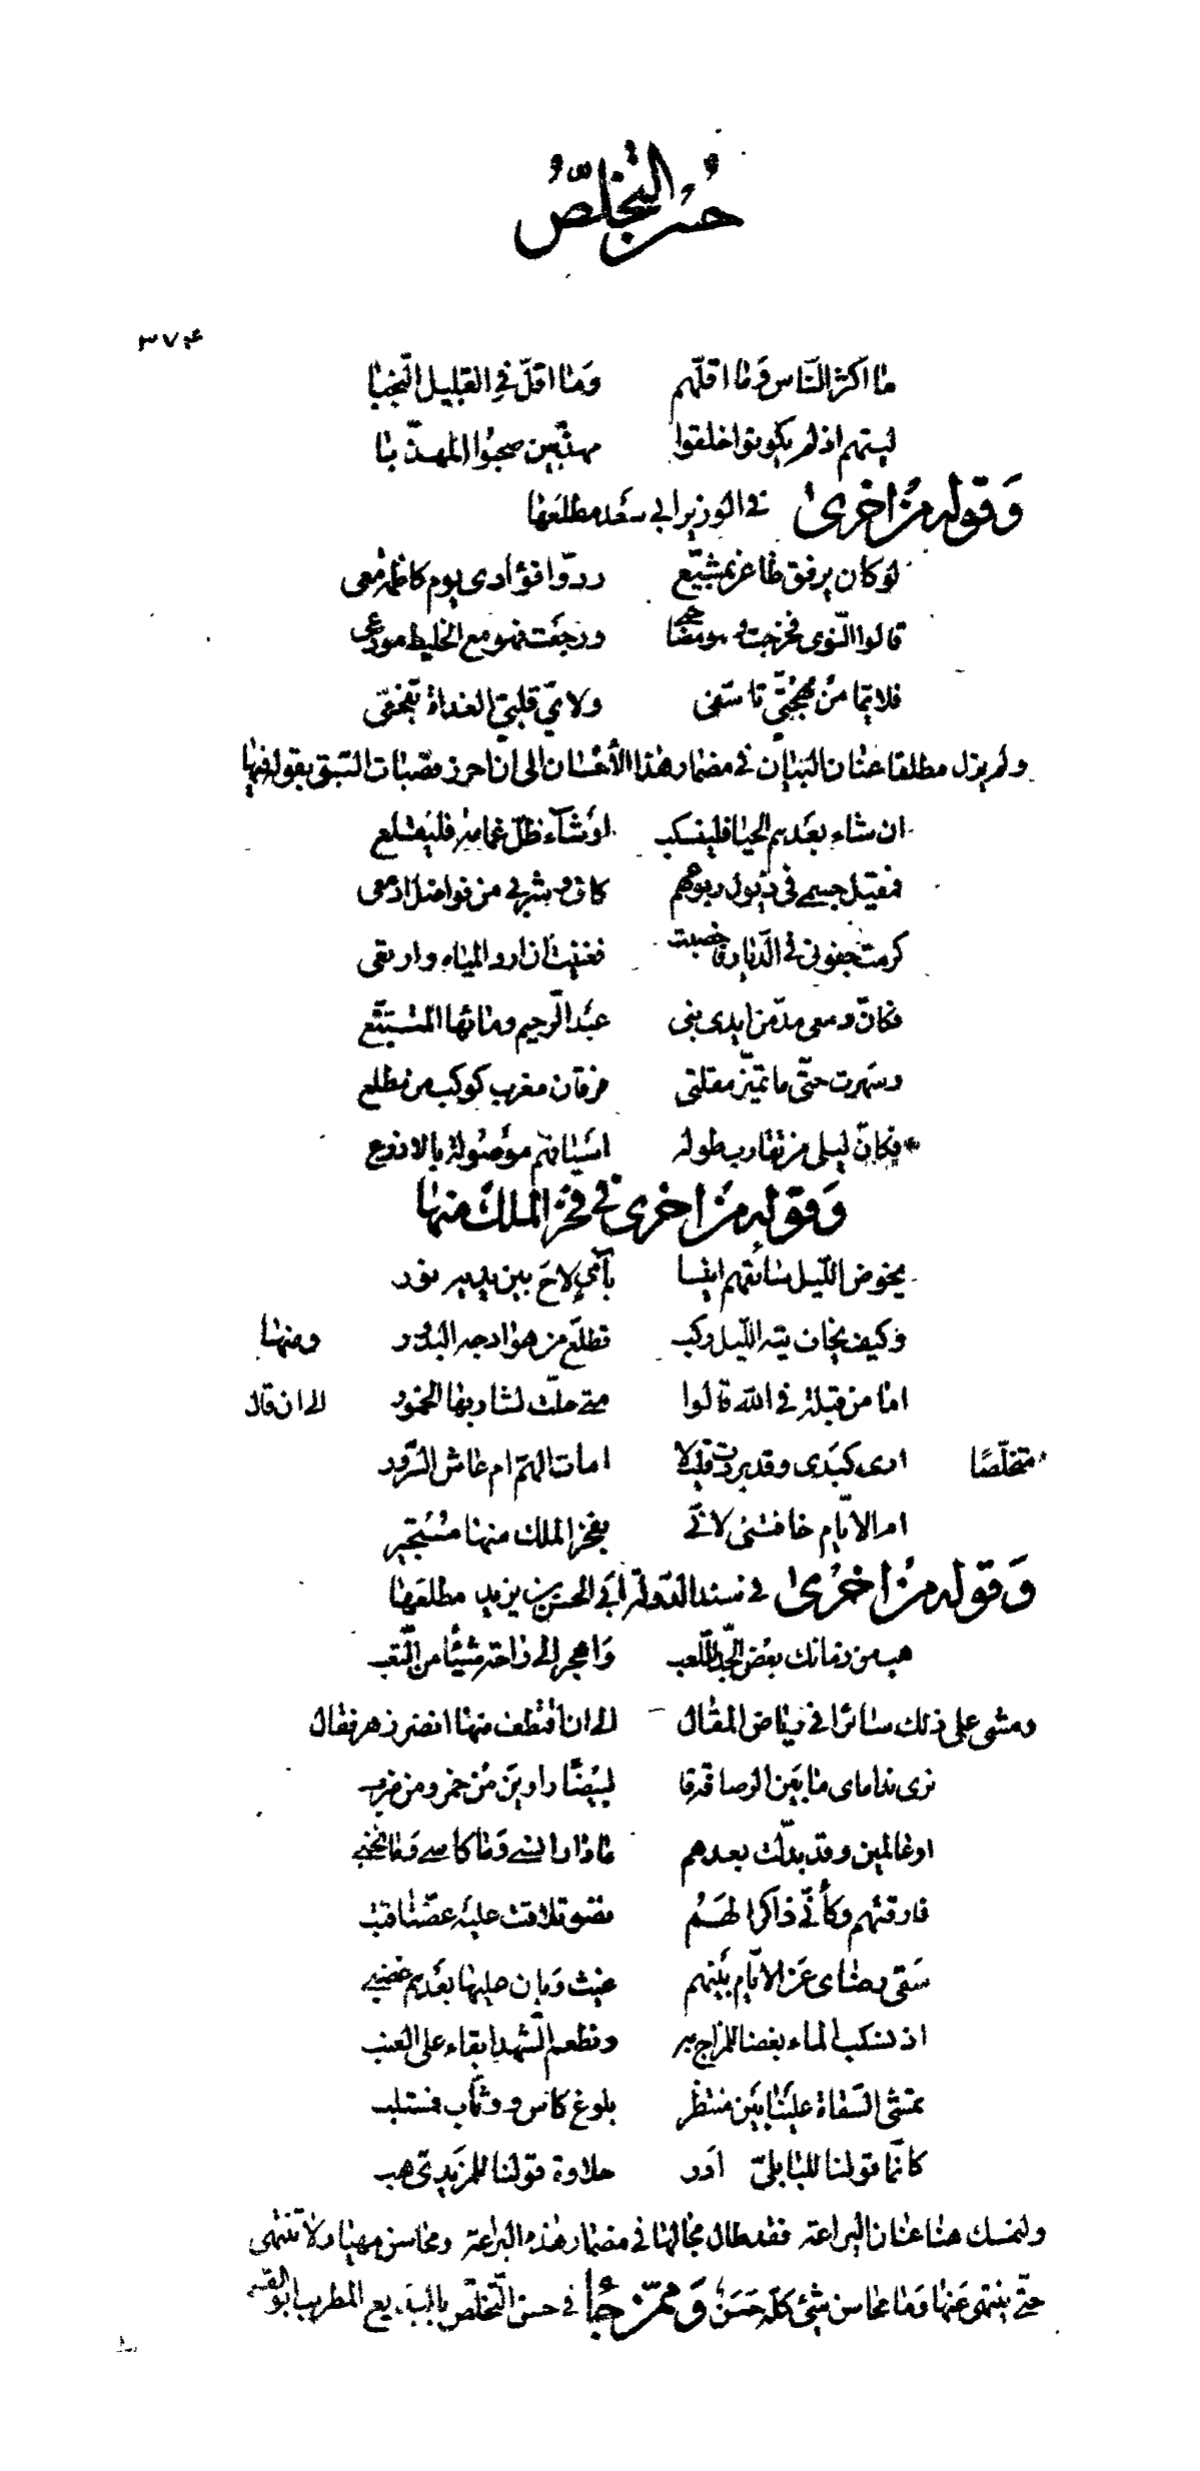 حُسْنُ التَّخَلُّصِ
۳۷۴
ما اكثر النّاس وَما اقلّهم وَما اقلّ في القليل النّجبا
ليتهم اذ لم يكونوا خلقوا مهذّبين صحبوا المهذّبا
وَقوله مِنْ اخرى في الوزير ابي سَعد مطلعَها
لو كان يرفق ظاعن بمشيّع ردّوا فؤادى يوم كاظمة معى
قالوا النّوى فخرجت وهو مصاحبى ورجَعت وهو مع الخليط مودعى
فلايّما مِنْ مهجتى تاسّفى ولايّ قلبيّ الغداة تفجّعى
ولم يزل مطلقا عنان البيان في مضمار هذا الأحسان الى ان احرز قصبات السّبق بقوله فيها
ان شاء بعَدهم الحيا فلينسكب او شآء ظلّ غمامة فليقلع
فمقيل جسمى في ذيول ربوعهم كاف وشربى من فواضل ادمعى
كرمت جفونى في الدّيار فاخصبت فغنيت ان ارد المياه وارتعى
فكانّ دمعى مدّ من ايدى بنى عبَد الرّحيم ومائها المتتبّع
وسهرت حتّى ما تميّز مقلتى فرقان مغرب كوكب من مطلع
فكانّ ليلى من تقارب طوله اسَيافهم موصُولة بالاذرع
وَقوله مِنْ اخرى في فخر الملك منها
يخوض اللّيل سائقهم انيسا بآيٍ لاحَ بين يديه نور
وكيف يخاف تيه اللّيل ركب تطلّع من هوادجه البدُور ومنها
اما من قبلة في الله قالوا متى حلّت لشاربها الخمور الى ان قال
متخلّصًا ارى كبَدى وقد بردت قليلا امات الهمّ ام عاش السّرور
ام الايّام خافتنى لانّى بفخر الملك منها مسْتجير
وَقوله مِنْ اخْرى في سند الدّولة أبَي الحسن بن مزيد مطلعَها
هب من زمانك بعْض الجدّ للّعب وَاهجر إلى راحة شيئًا من التّعب
ومشى على ذلك سائرا في رياض المقال الى ان اقتطف منها انضر زهر فقال
ترى نداماى ما بَين الرصافة فا لبيضًا راوين مِنْ خمر ومن طرب
او عالمين وقد بدّلت بعدهم ما دار انسى وَما كاسى وَما نخبى
فارقتهم وكأنّى ذاكرا لهَمُ نضو تلاقت عليَه عضّتا قتب
سَقى رضاى عَن الايّام بَينهم غيث وَبان عليها بعَدهم غضبى
اذ نسكب الماء بغضا للمزاج به ونطعم الشّهد ابقاء على العنب
تمشى السّقاة علَينا بَين منتظر بلوغ كاس ووثّاب فمستلب
كانّما قولنا للبابليّ ادَر حلاوة قولنا للمزَيدىّ هب
ولنمسك هنا عنان اليراعة فقد طال مجالها في مضمار هذه البراعة ومحاسن مهيار لا تنتهى
حتّى ينتهى عَنها وَما محاسن شئ كلّه حَسَن وَممّن جُبا في حسن التّخلّص بالبَديع المطرب ابو القسم